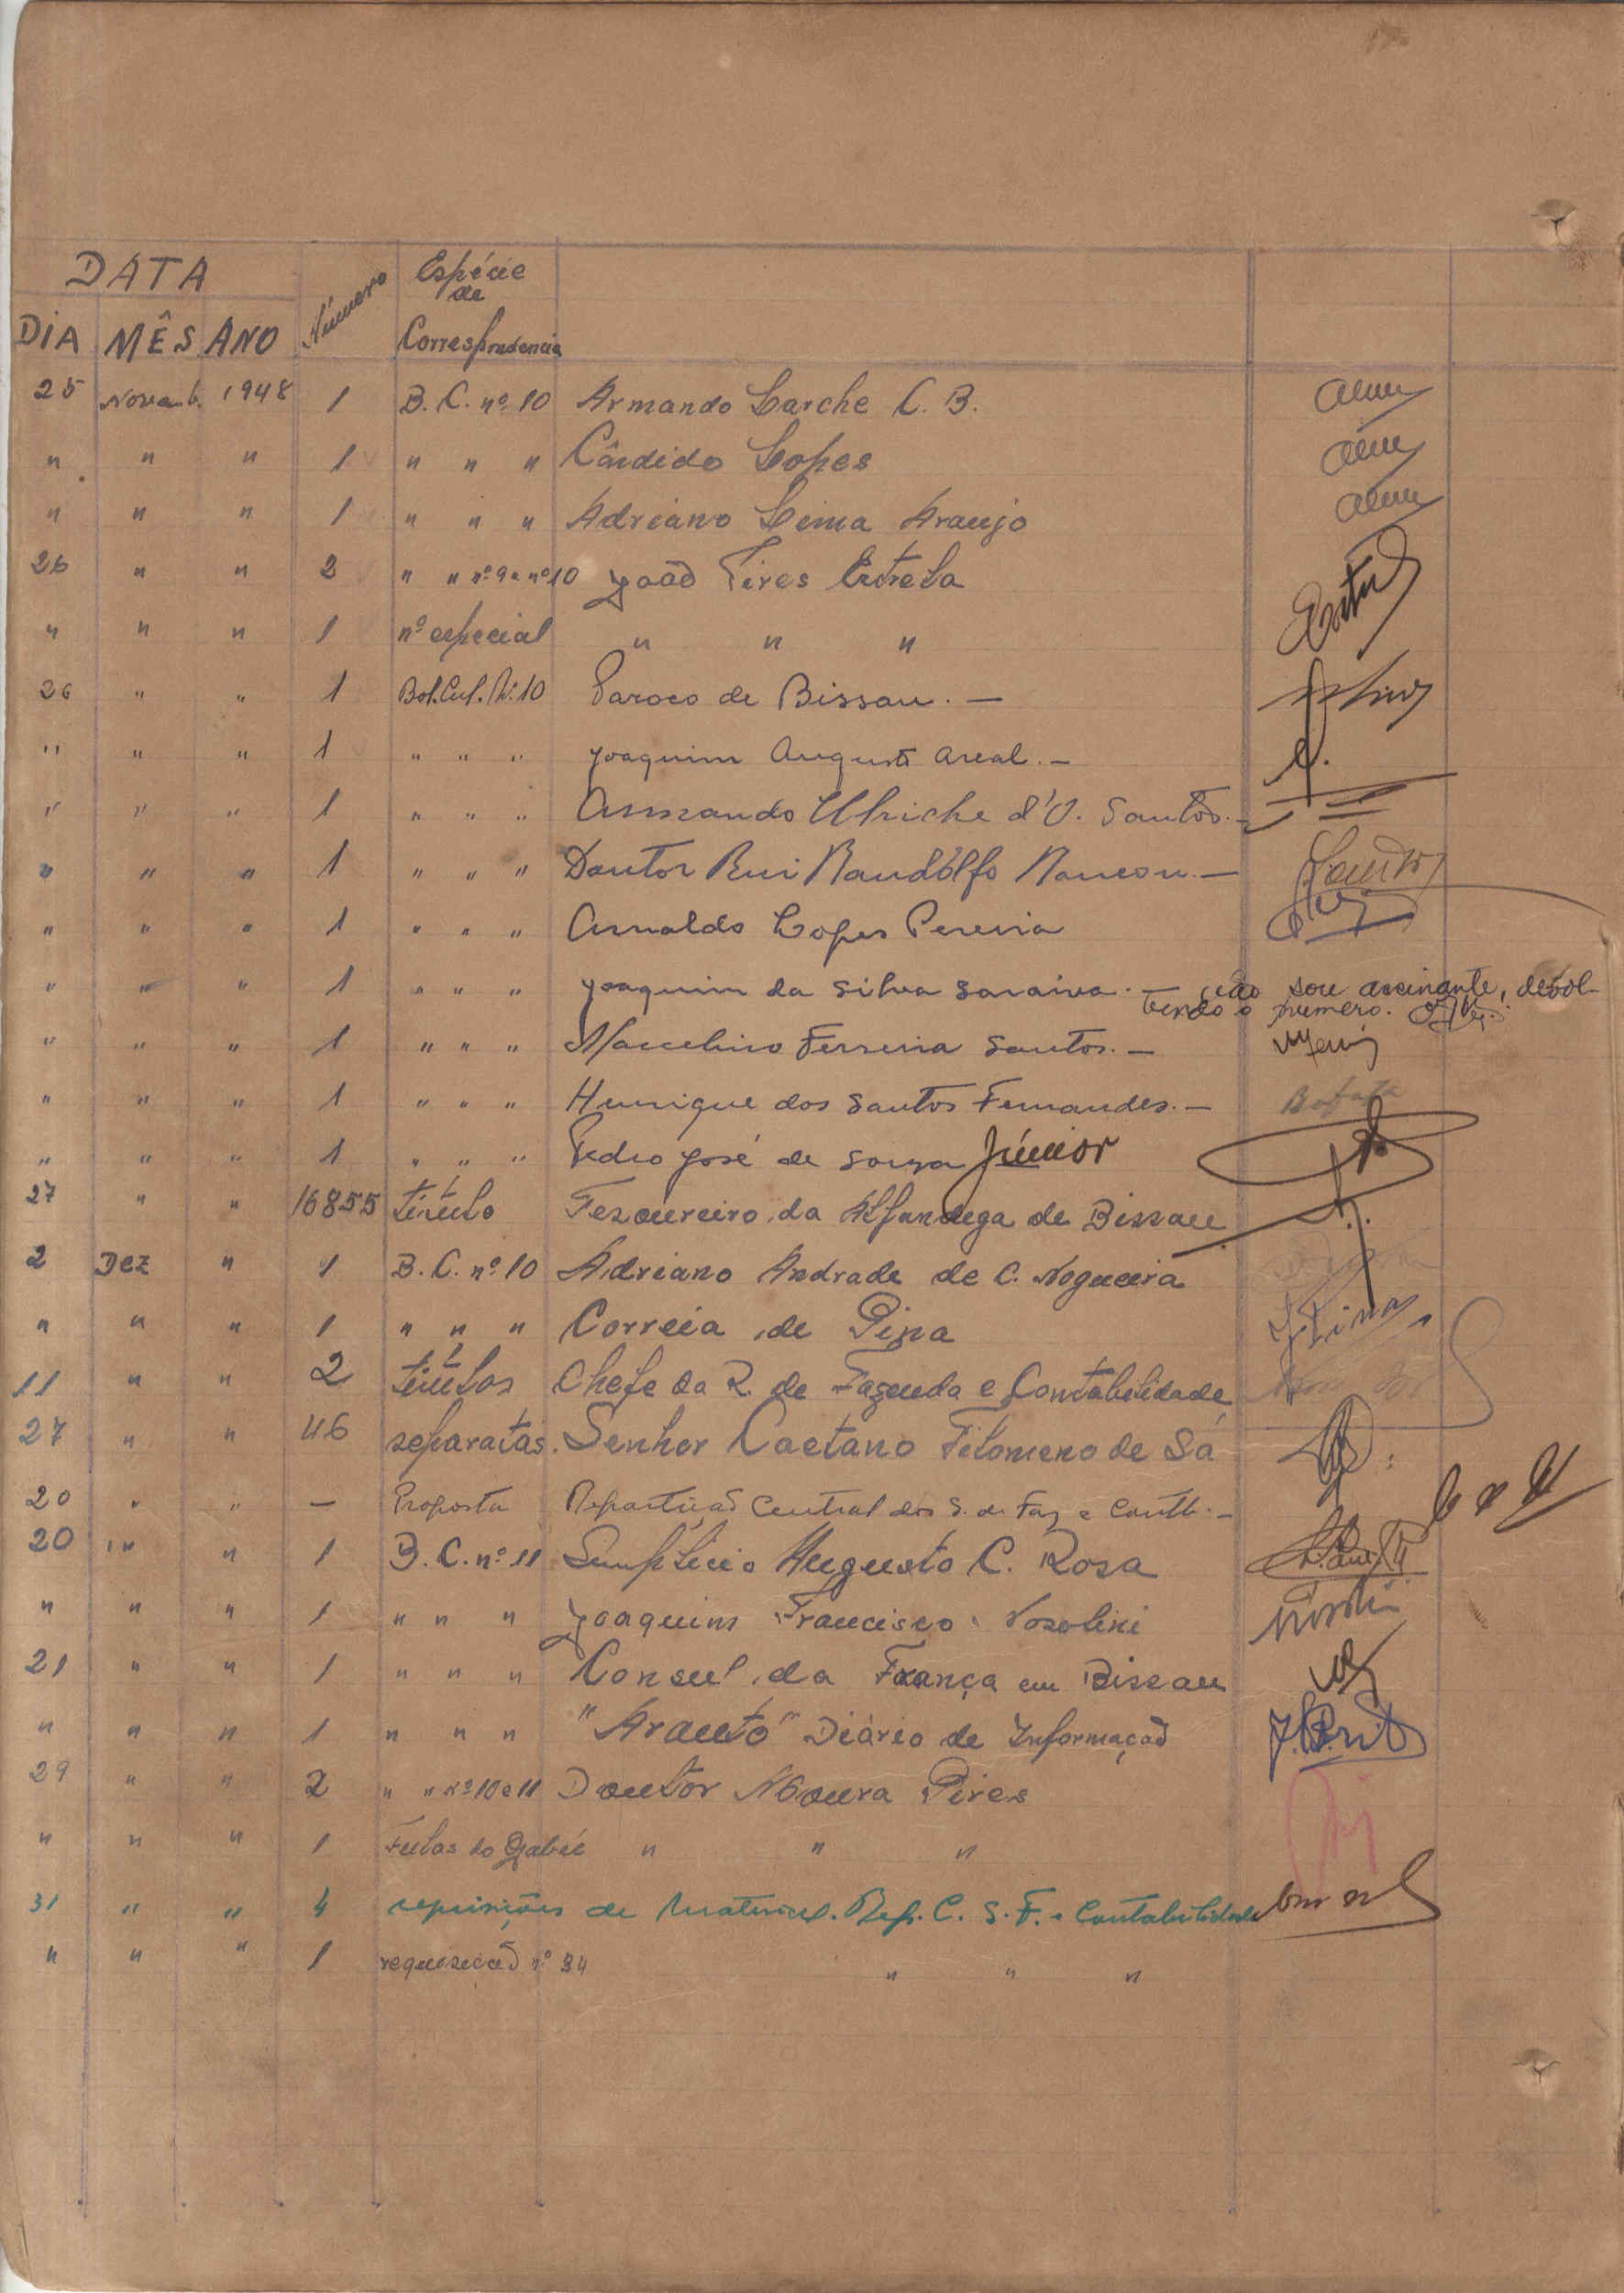 DATA
DIA MÊS ANO Número Espécie de Correspondencia
25 Novemb. 1948 1 B. C. nº 10 Armando Larche C. B.
" " " 1 " " " Cândido Lopes
" " " 1 " " " Adriano Lima Araujo
26 " " 2 " " nº 9 e nº 10 João Pires Estrela
" " " 1 nº especial " " "
26 " " 1 Bol. Cul. N. 10 Paroco de Bissau. —
" " " 1 " " " Joaquim Augusto Areal. —
" " " 1 " " " Armando Ulriche d'O. Santos. —
" " " 1 " " " Doutor Rui Randolfo —
" " " 1 " " " Arnaldo Lopes Pereira
" " " 1 " " " Joaquim da Silva Saraiva. — não sou assinante, devol-
vendo o numero.
" " " 1 " " " Marcelino Ferreira Santos. —
" " " 1 " " " Henrique dos Santos Fernandes. — Bafatá
" " " 1 " " " Pedro José de Souza Júnior
27 " " 16855 título Tesoureiro da Alfandega de Bissau
2 Dez " 1 B. C. nº 10 Adriano Andrade de C. Nogueira
" " " 1 " " " Correia de Pina
11 " " 2 títulos Chefe da R. de Fazenda e Contabilidade
27 " " 46 separatas. Senhor Caetano Filomeno de Sá
20 " " — Proposta Repartição Central dos S. de Faz e Contb. —
20 " " 1 B. C. nº 11 Simplicio Augusto C. Rosa
" " " 1 " " " Joaquim Francisco Nosolini
21 " " 1 " " " Consul da França em Bissau
" " " 1 " " " "Arauto" Diário de Informação
29 " " 2 " " nº 10 e 11 Doutor Moura Pires
" " " 1 Fulas do Gabú " " "
31 " " 4 requisições de Material. Rep. C. S. F. e Contabilidade
" " " 1 requesição nº 34 " " "